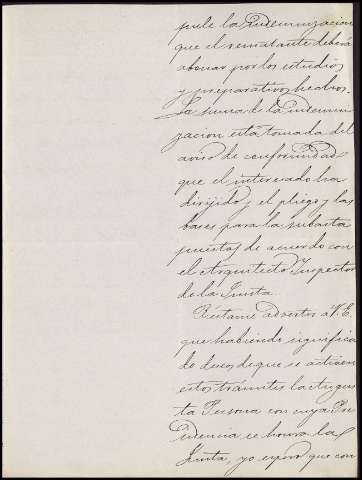 pule la indemnizacion
que el rematante deberá
abonar por los estudios
y preparativos hechos.
La suma de la indemni
zacion está tomada del
aviso de conformidad
que el interesado ha
dirijido, y el pliego y las
bases para la subasta
puestas de acuerdo con
el Arquitecto Inspector
de la Junta.
Réstame advertir a V. E.
que habiendo significa
do deseos de que se activen
estos trámites la Augus
ta Persona con cuya Pre
sidencia se honra la
Junta, yo espero que con